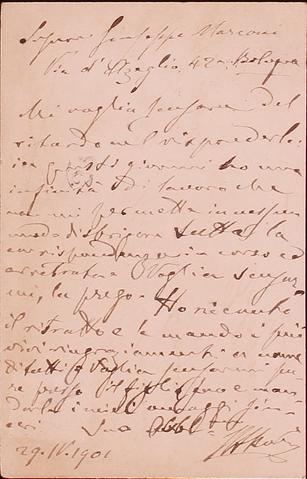 Signor Giuseppe Marconi
Via d'Azeglio 42 Bologna
Mi voglia scusare del
ritardo nel risponderle:
in questi giorni ho una
infinità di lavoro che
non mi permette in nessun
modo disbrigare tutta la
corrispondenza in corso ed
arretrata. Voglia scusar
mi, la prego. Ho ricevuto
il ritratto e le mando i più
vivi ringraziamenti a nome
di tutti. Voglia scusarmi pu
re presso il figlio
i miei omaggi sin
ceri Suo
29.IV.1901